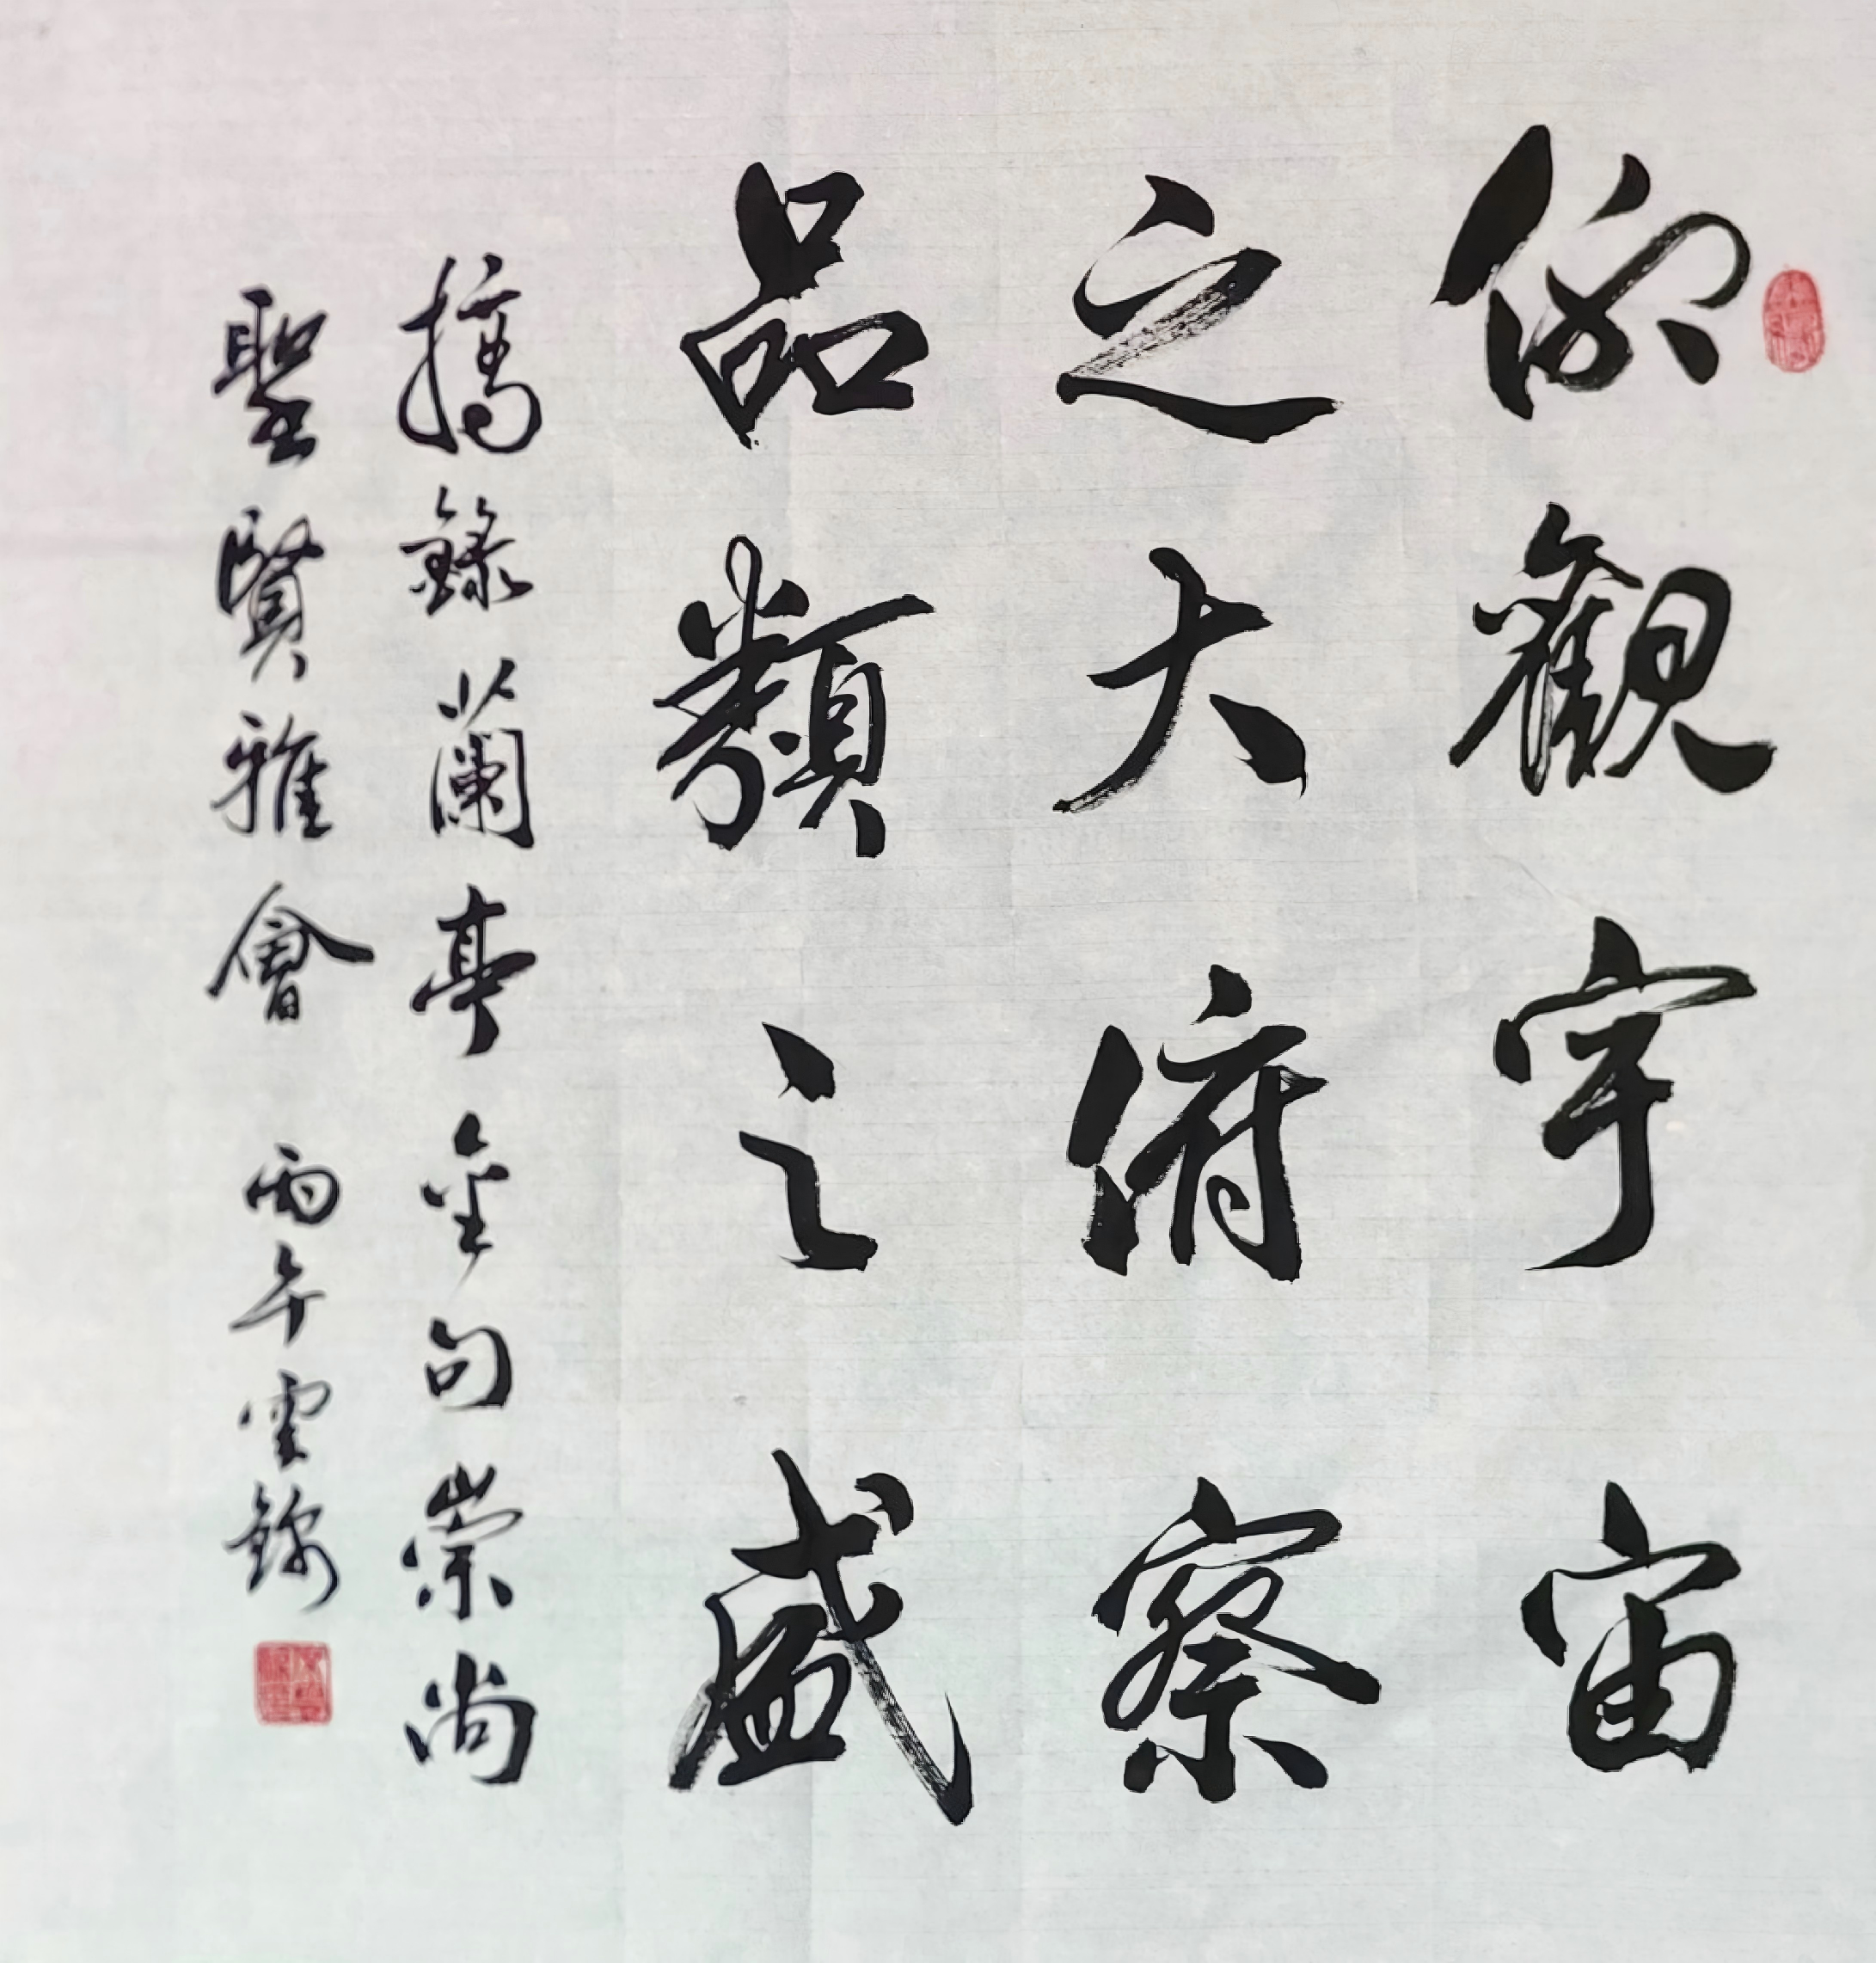 仰觀宇宙
之大俯察
品類之盛
摘錄蘭亭金句崇尚
聖賢雅會 丙午雲錦